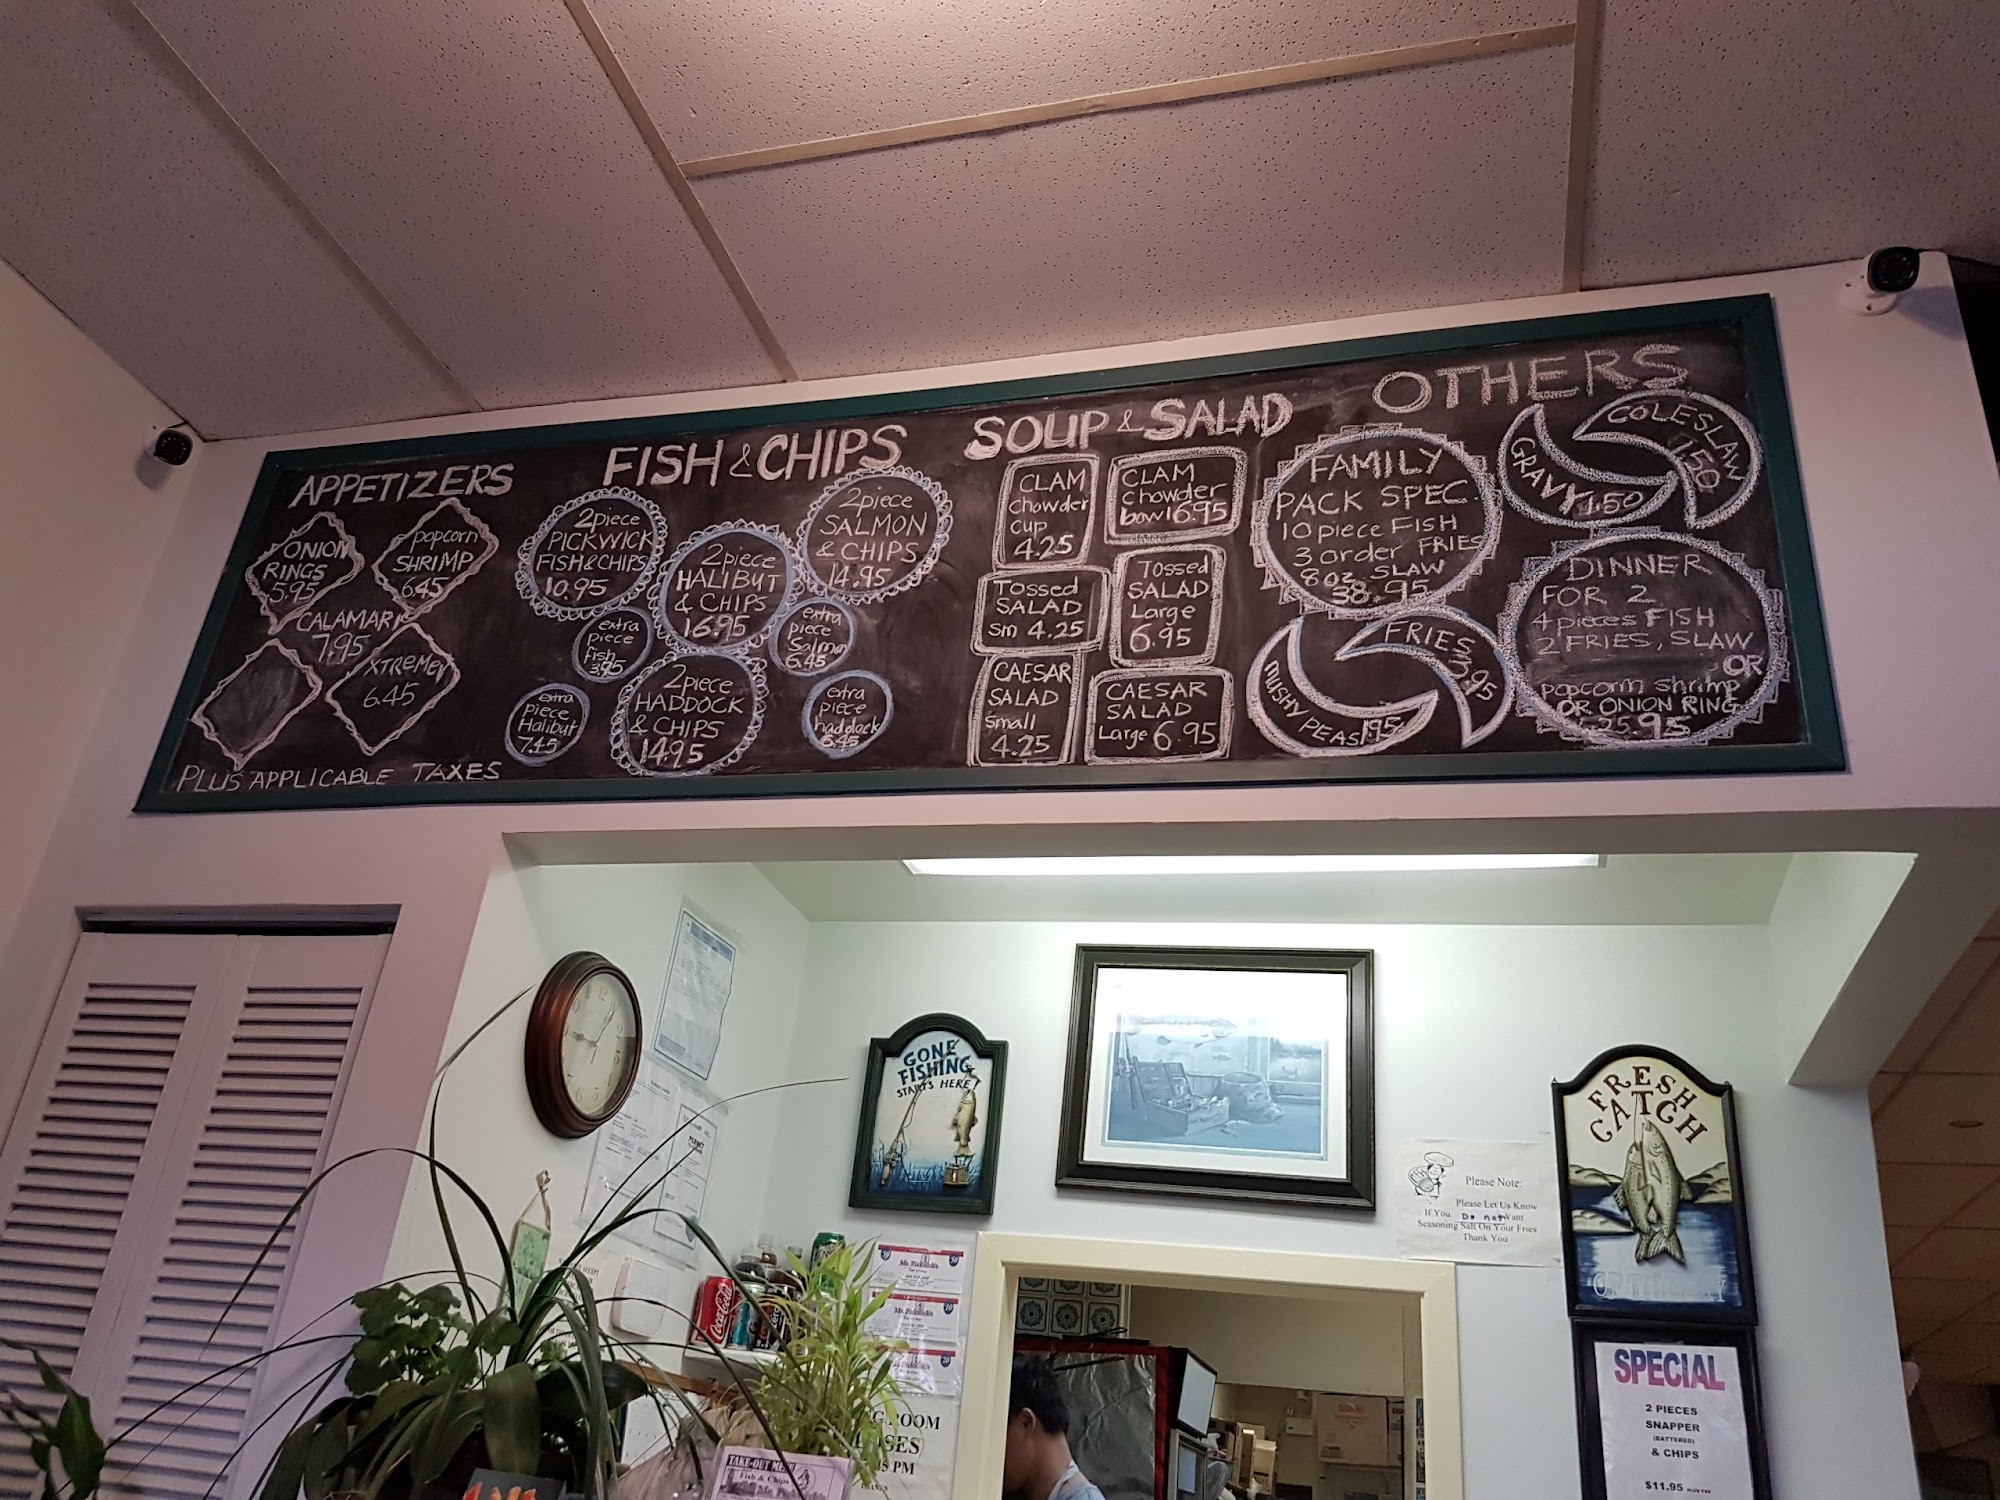 APPETIZERS
ONION
RINGS
5.95
popcorn
SHRIMP
6.45
CALAMARI
7.95
XTREMEs
6.45
PLUS APPLICABLE TAXES
FISH & CHIPS
2piece
PICKWICK
FISH & CHIPS
10.95
2piece
HALIBUT
& CHIPS
16.95
2piece
SALMON
& CHIPS
14.95
extra
piece
fish
3.95
extra
piece
Salmon
6.45
extra
piece
Halibut
7.45
2piece
HADDOCK
& CHIPS
14.95
extra
piece
haddock
6.45
SOUP & SALAD
CLAM
chowder
cup
4.25
CLAM
chowder
bowl 6.95
Tossed
SALAD
sm 4.25
Tossed
SALAD
Large
6.95
CAESAR
SALAD
small
4.25
CAESAR
SALAD
Large 6.95
OTHERS
FAMILY
PACK SPEC.
10 piece FISH
3 order FRIES
8 oz SLAW
38.95
GRAVY 1.50
COLESLAW
1.50
MUSHY PEAS 1.95
FRIES
3.95
DINNER
FOR 2
4 pieces FISH
2 FRIES, SLAW
OR
popcorn shrimp
OR ONION RING
25.95
GONE
FISHING
STARTS HERE
FRESH
CATCH
Please Note:
Please Let Us Know
If You Do not Want
Seasoning Salt On Your Fries
Thank You
SPECIAL
2 PIECES
SNAPPER
(BATTERED)
& CHIPS
$11.95 PLUS TAX
Coca-Cola
PERMIT
ROOM
PM
TAKE-OUT MENU
Fish & Chips